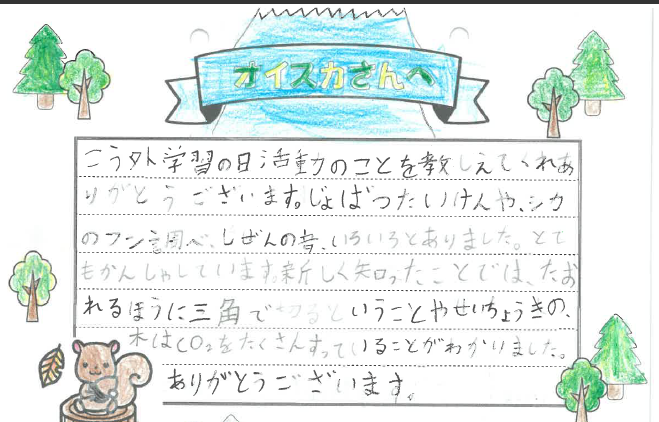 オイスカさんへ
こう外学習の日活動のことを教しえてくれあ
りがとうございます。じょばつたいけんや、シカ
のフン調べ、しぜんの音、いろいろとありました。とて
もかんしゃしています。新しく知ったことでは、たお
れるほうに三角で切るということやせいちょうきの、
木はCO₂をたくさんすっていることがわかりました。
ありがとうございます。